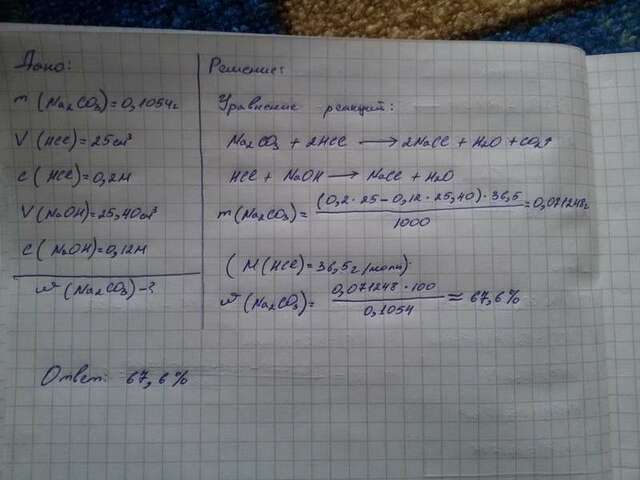 Дано:
m (Na₂CO₃) = 0,1054г
V (HCl) = 25 см³
c (HCl) = 0,2М
V (NaOH) = 25,40 см³
c (NaOH) = 0,12М
ω (Na₂CO₃) - ?
Решение:
Уравнение реакций:
Na₂CO₃ + 2HCl ⟶ 2NaCl + H₂O + CO₂↑
HCl + NaOH ⟶ NaCl + H₂O
m (Na₂CO₃) = (0,2 · 25 - 0,12 · 25,40) · 36,5 / 1000 = 0,071248г
( M (HCl) = 36,5 г/моль):
ω (Na₂CO₃) = 0,071248 · 100 / 0,1054 ≈ 67,6%
Ответ: 67,6%